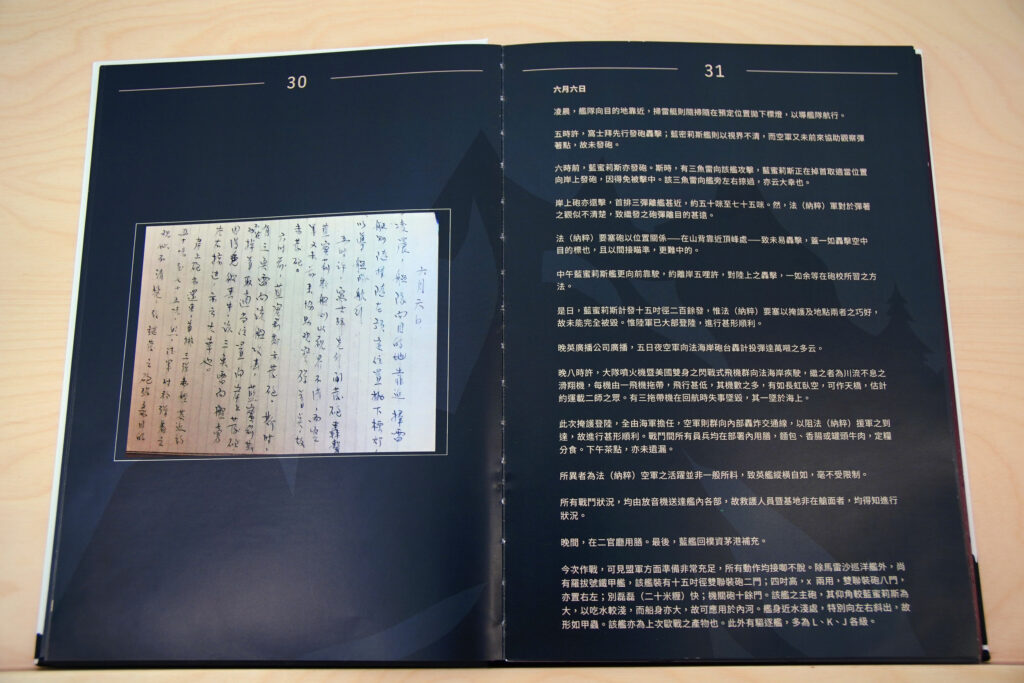 30
六月六日
凌晨，艦隊向目的地靠近，掃雷
艇則隨掃隨在預定位置拋下標燈
以導艦隊航行
五時許，富士拜先行開發砲轟擊
藍蜜莉斯艦則以視界不清，而空
軍又未前來協助觀察彈著點，故
未發砲。
六時前，藍蜜莉斯亦發砲。斯時，
有三魚雷向該艦攻擊，藍蜜莉斯
掉首取適當位置向岸上發砲
因得免被擊中。該三魚雷向艦旁
左右掠過，亦云大幸也。
岸上砲亦還擊，首排三彈離艦甚近約
五十咪至七十五咪。然，法軍對於彈著之
觀似不清楚，致繼發之砲彈離目的
31
六月六日
凌晨，艦隊向目的地靠近，掃雷艇則隨掃隨在預定位置拋下標燈，以導艦隊航行。
五時許，富士拜先行發砲轟擊；藍密莉斯艦則以視界不清，而空軍又未前來協助觀察彈
著點，故未發砲。
六時前，藍蜜莉斯亦發砲。斯時，有三魚雷向該艦攻擊，藍蜜莉斯正在掉首取適當位置
向岸上發砲，因得免被擊中。該三魚雷向艦旁左右掠過，亦云大幸也。
岸上砲亦還擊，首排三彈離艦甚近，約五十咪至七十五咪。然，法（納粹）軍對於彈著
之觀似不清楚，致繼發之砲彈離目的甚遠。
法（納粹）要塞砲以位置關係——在山背靠近頂峰處——致未易轟擊，蓋一如轟擊空中
目的標也，且以間接瞄準，更難中的。
中午藍蜜莉斯艦更向前靠駛，約離岸五哩許，對陸上之轟擊，一如余等在砲校所習之方
法。
是日，藍蜜莉斯計發十五吋徑二百餘發，惟法（納粹）要塞以掩護及地點兩者之巧好，
故未能完全被毀。惟陸軍已大部登陸，進行甚形順利。
晚英廣播公司廣播，五日夜空軍向法海岸砲台轟計投彈達萬噸之多云。
晚八時許，大隊噴火機暨美國雙身之閃戰式飛機群向法海岸疾駛，繼之者為川流不息之
滑翔機，每機由一飛機拖帶，飛行甚低，其機數之多，有如長虹臥空，可作天橋，估計
約運載二師之眾。有三拖帶機在回航時失事墜毀，其一墜於海上。
此次掩護登陸，全由海軍擔任，空軍則群向內部轟炸交通線，以阻法（納粹）援軍之到
達，故進行甚形順利。戰鬥間所有員兵均在部署內用膳，麵包、香腸或罐頭牛肉，定糧
分食。下午茶點，亦未遺漏。
所異者為法（納粹）空軍之活躍並非一般所料，致英艦縱橫自如，毫不受限制。
所有戰鬥狀況，均由放音機送達艦內各部，故救護人員暨基地非在艙面者，均得知進行
狀況。
晚間，在二官廳用膳。最後，藍艦回樸資茅港補充。
今次作戰，可見盟軍方面準備非常充足，所有動作均接啣不脫。除馬雷沙巡洋艦外，尚
有羅拔號鐵甲艦，該艦裝有十五吋徑雙聯裝砲二門；四吋高，x 兩用，雙聯裝砲八門，
亦置右左；別磊磊（二十米糎）快；機關砲十餘門。該艦之主砲，其仰角較藍蜜莉斯為
大，以吃水較淺，而船身亦大，故可應用於內河。艦身近水淺處，特別向左右斜出，故
形如甲蟲。該艦亦為上次歐戰之產物也。此外有驅逐艦，多為 L、K、J 各級。